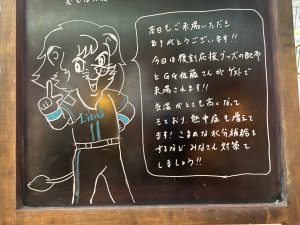 本日もご来場いただき
ありがとうございます!!
今日は復刻応援グッズの配布
とGG佐藤さんがゲストで
来場されます!!
気温がとても高くなって
きており、熱中症も増えて
きます! こまめな水分補給を
するなど みなさん対策で
しましょう!!
Lions
11